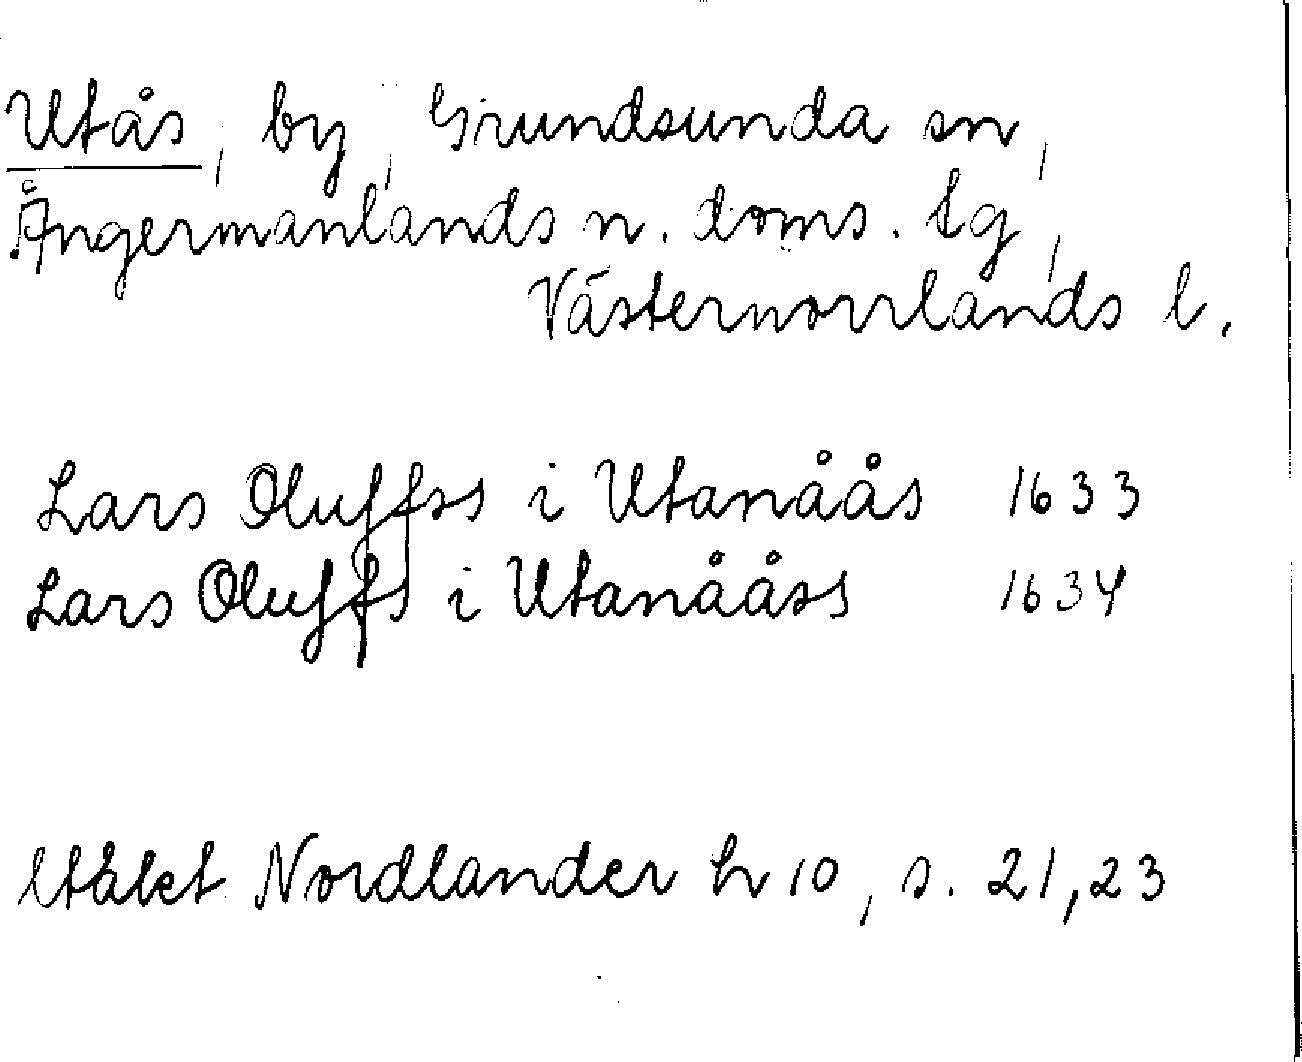 Utås, by, Grundsunda sn,
Ångermanlands n. doms. tg,
Västernorrlands l.
Lars Oluffss i Utanåås 1633
Lars Oluffs i Utanååss 1634
Nordlander h 10, s. 21, 23